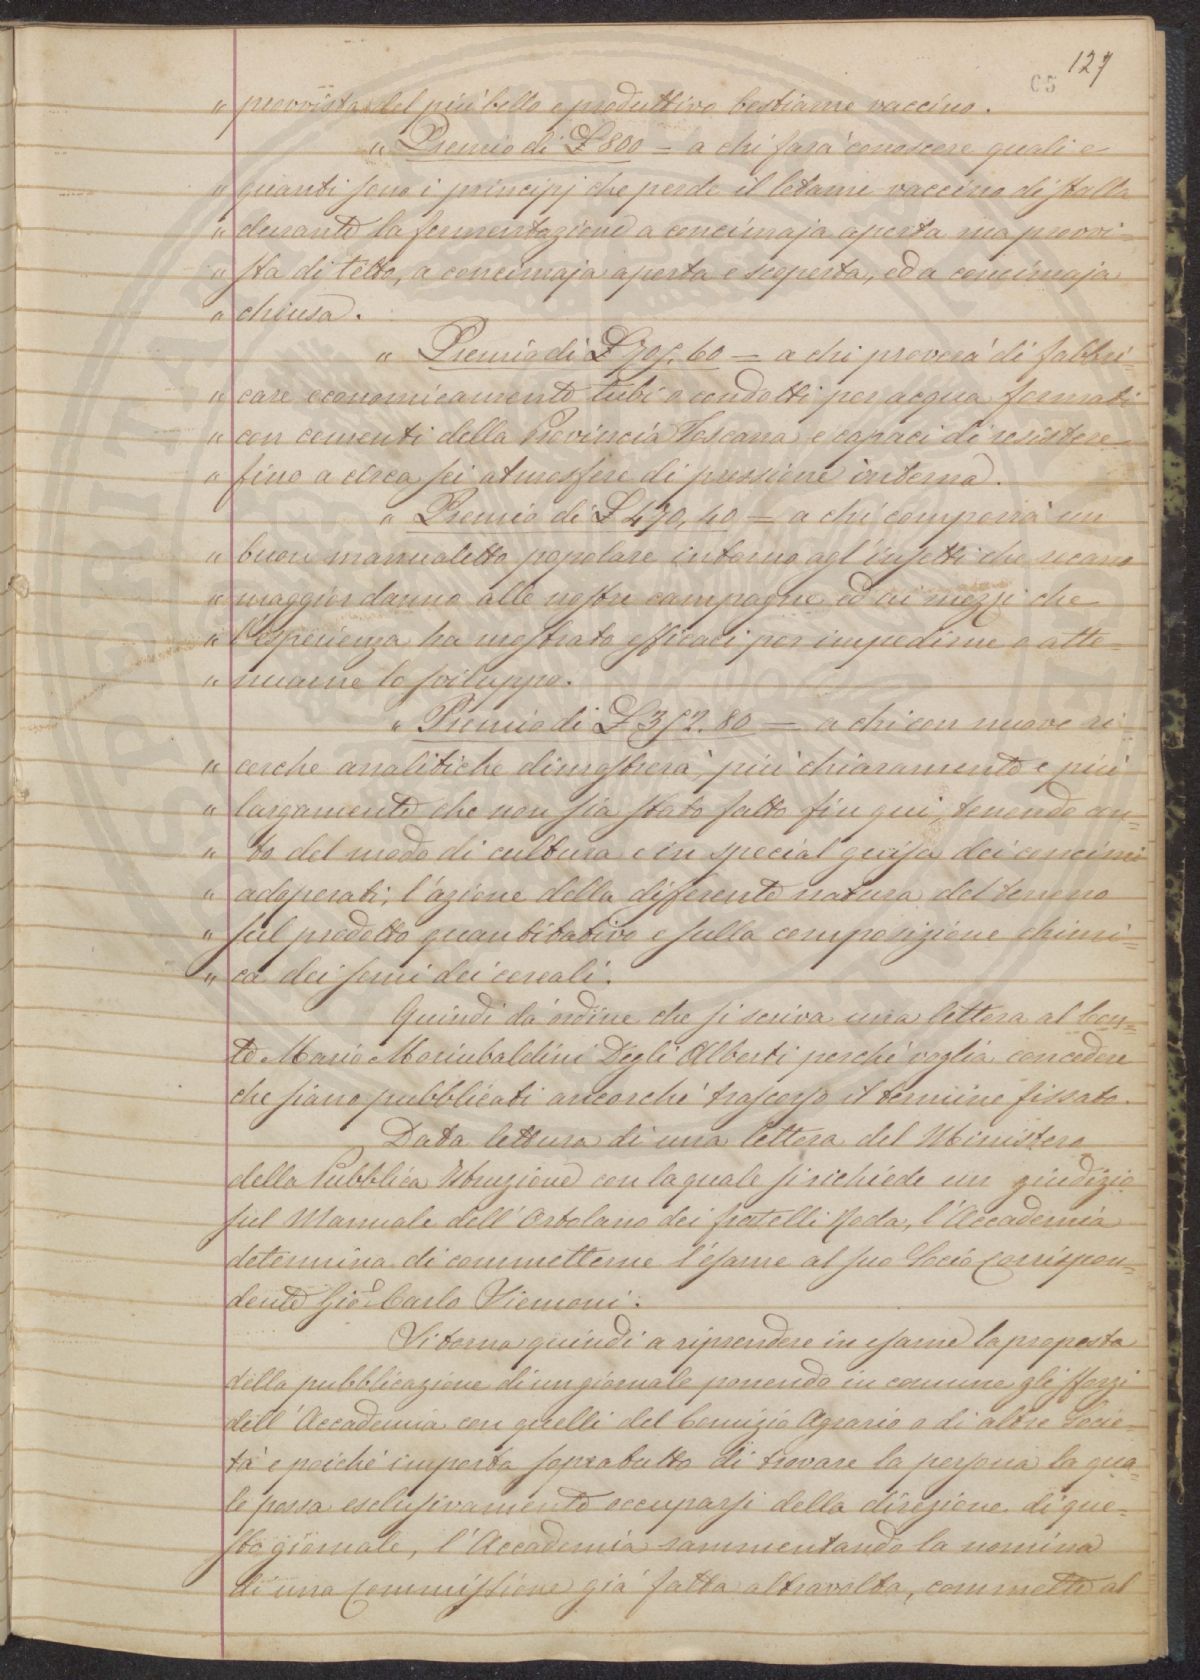 127
65
" provvista del più bello e produttivo bestiame vaccino.
" Premio di £ 800 = a chi farà conoscere quali e
" quanti sono i principj che perde il letame vaccino di stalla
" durante la fermentazione a concimaja aperta ma provvi=
" sta di tetto, a concimaja aperta e scoperta, ed a concimaja
" chiusa.
" Premio di £ 705. 60 = a chi proverà di fabbri=
" care economicamente tubi o condotti per acqua formati
" con cementi della Provincia Toscana e capaci di resistere
" fino a circa sei atmosfere di pressione interna.
" Premio di £ 470, 40 = a chi comporrà un
" buon manualetto popolare intorno agl'insetti che recano
" maggior danno alle nostre campagne ed ai mezzi che
" l'esperienza ha mostrato efficaci per impedirne o atte=
" nuarne lo sviluppo.
" Premio di £ 352. 80 = a chi con nuove ri
" cerche analitiche dimostrerà, più chiaramente e più
" largamente che non sia stato fatto fin qui, tenendo con=
" to del modo di cultura e in special guisa dei concimi
" adoperati, l'azione della differente natura del terreno
" sul prodotto quantitativo e sulla composizione chimi=
" ca dei semi dei cereali.
Quindi dà ordine che si scriva una lettera al Con=
te Mario Morinbaldini Degli Alberti perché voglia concedere
che siano pubblicati ancorché trascorso il termine fissato.
Data lettura di una lettera del Ministero
della Pubblica Istruzione con la quale si richiede un giudizio
sul Manuale dell'Ortolano dei fratelli Roda, l'Accademia
determina di commetterne l'esame al suo Socio Corrispon=
dente Gio. Carlo Siemoni.
Si torna quindi a riprendere in esame la proposta
della pubblicazione di un giornale ponendo in comune gli sforzi
dell'Accademia con quelli del Comizio Agrario o di altre Socie=
tà e poiché importa soprattutto di trovare la persona la qua=
le possa esclusivamente occuparsi della direzione di que=
sto giornale, l'Accademia rammentando la nomina
di una Commissione già fatta altravolta, commette al